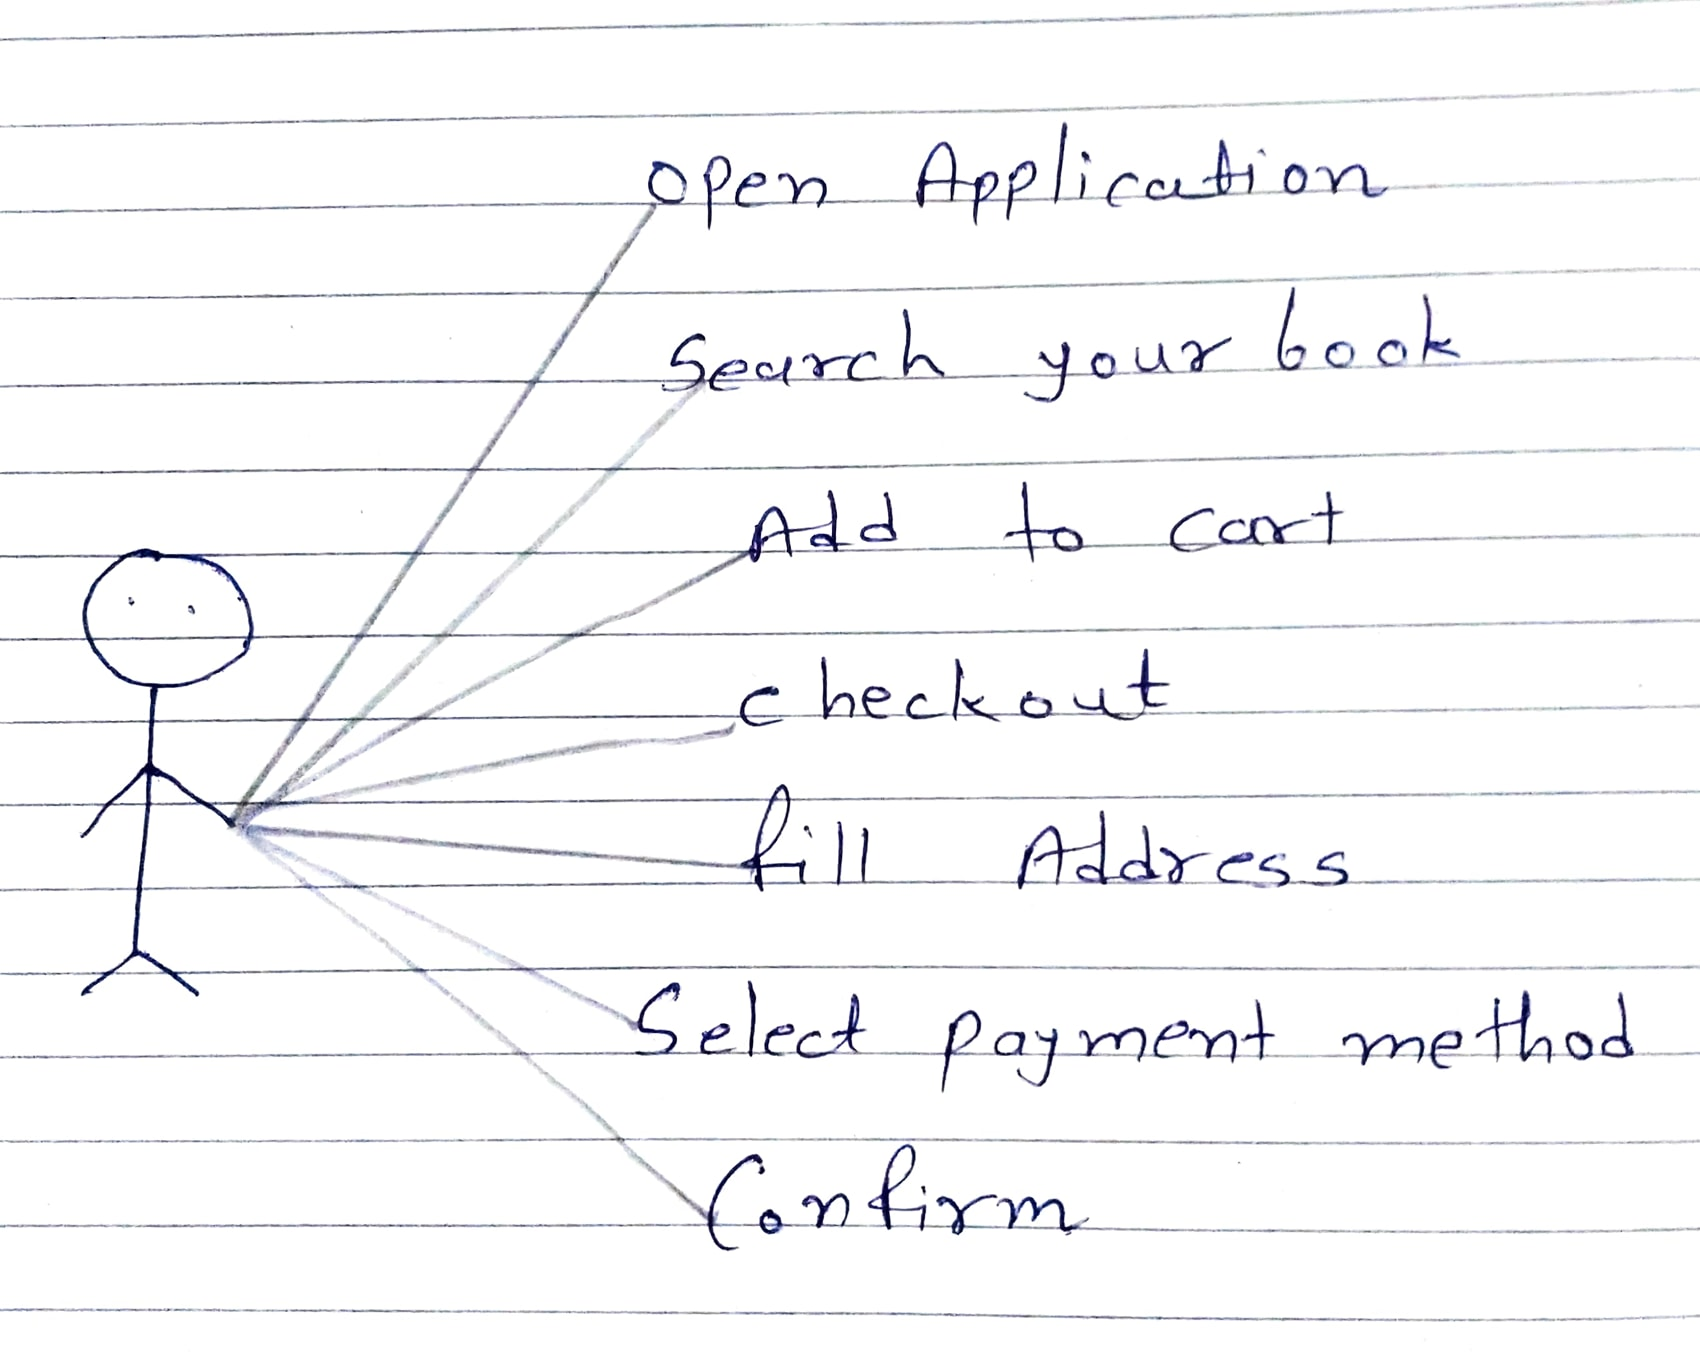 Open Application
Search your book
Add to cart
checkout
fill Address
Select payment method
Confirm